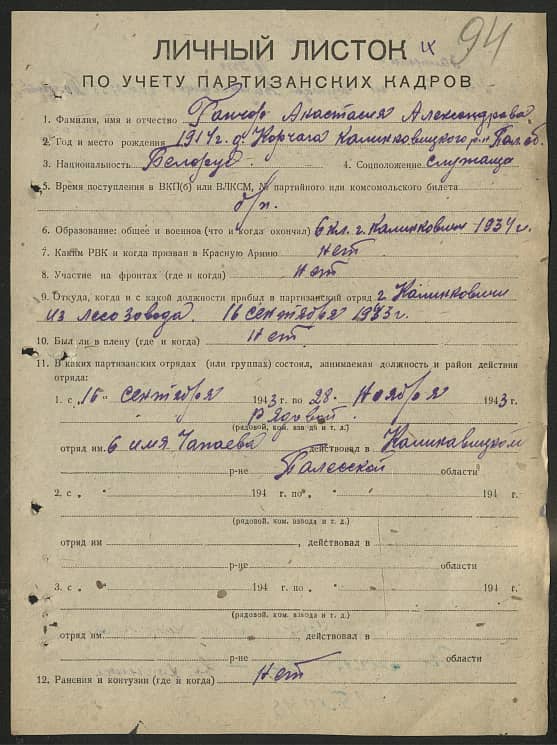 94
ЛИЧНЫЙ ЛИСТОК IX
ПО УЧЕТУ ПАРТИЗАНСКИХ КАДРОВ
1. Фамилия, имя и отчество Ганчор Анастасия Александрава
2. Год и место рождения 1914 г. д. Корчага Калинковицкого р-н Пол. об.
3. Национальность Белорус. 4. Соцположение служаща
5. Время поступления в ВКП(б) или ВЛКСМ, № партийного или комсомольского билета
б/п.
6. Образование: общее и военное (что и когда окончил) 6 кл. г. Калинковичи 1934 г.
7. Каким РВК и когда призван в Красную Армию нет
8. Участие на фронтах (где и когда) Нет
9. Откуда, когда и с какой должности прибыл в партизанский отряд г. Калинковичи
из лесозовода. 16 сентября 1933 г.
10. Был ли в плену (где и когда) Нет
11. В каких партизанских отрядах (или группах) состоял, занимаемая должность и район действия
отряда:
1. с „ 16 “ сентября 1943 г. по „ 28 “ Ноября 1943 г.
Рядовой.
(рядовой, ком. взвода и т. д.)
отряд им 6 имя Чапаева действовал в Калинкавицком
р-не Палесской области
2. с „ “ 194 г. по „ “ 194 г.
(рядовой, ком. взвода и т. д.)
отряд им , действовал в
р-не области
3. с „ “ 194 г. по „ “ 194 г.
(рядовой, ком. взвода и т. д.)
отряд им , действовал в
р-не области
12. Ранения и контузии (где и когда) Нет